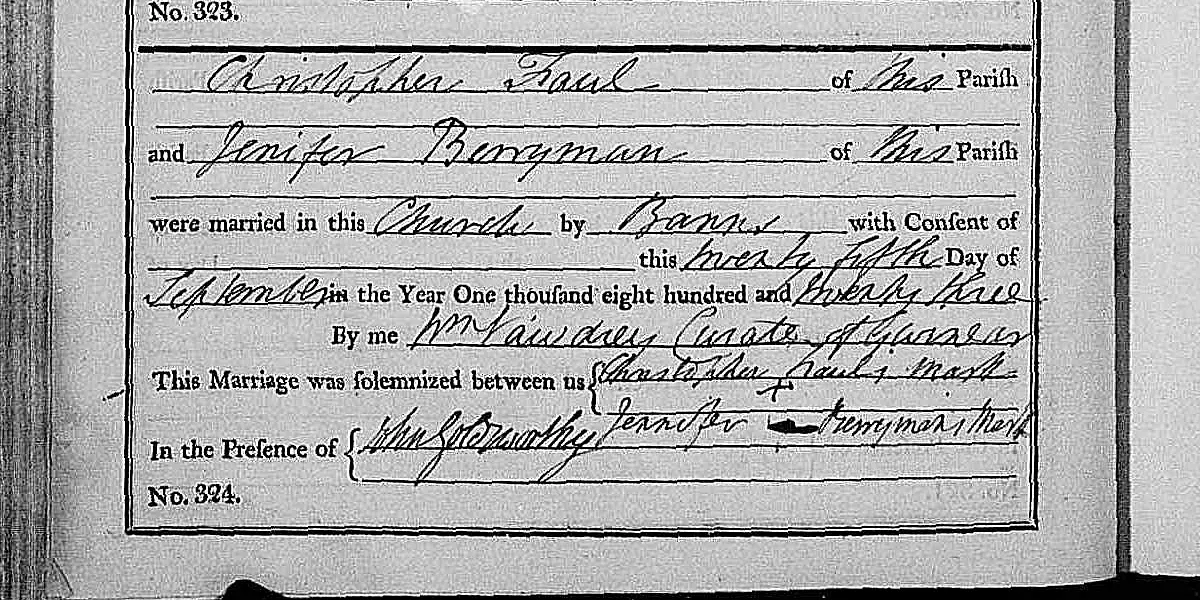 No. 323.
Christopher Faul of this Pariſh
and Jenifer Berryman of this Pariſh
were married in this Church by Banns with Conſent of
this twenty fifth Day of
September in the Year One thouſand eight hundred and twenty three
By me Wm Vawdrey Curate of Gwinear
This Marriage was ſolemnized between us Christopher Faul's Mark
Jennifer Berryman's Mark
In the Preſence of John Goldsworthy
No. 324.